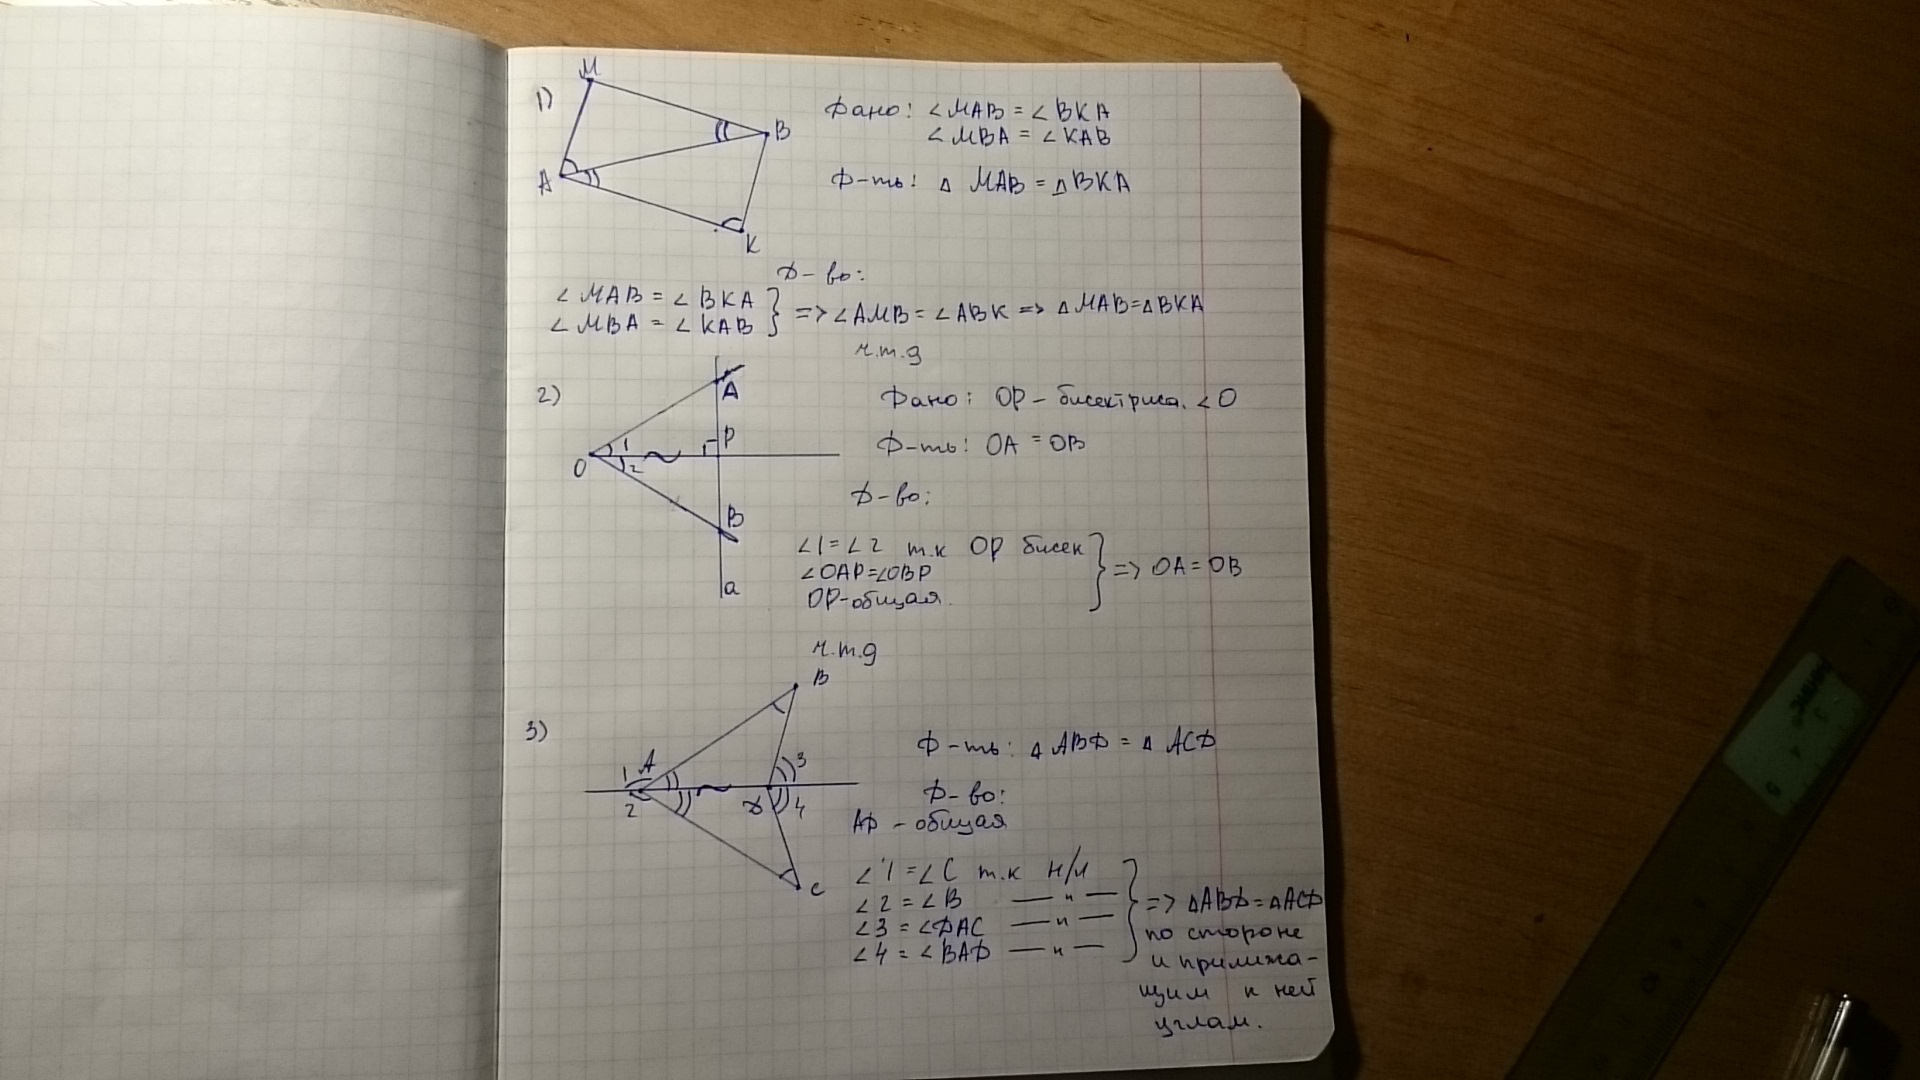 1)
M
B
A
K
Дано: ∠MAB = ∠BKA
∠MBA = ∠KAB
Д-ть: △ MAB = △BKA
Д-во:
∠MAB = ∠BKA
∠MBA = ∠KAB } => ∠AMB = ∠ABK => △MAB=△BKA
ч.т.д
2)
A
P
O
1
2
B
a
Дано: OP - бисектриса ∠O
Д-ть: OA = OB
Д-во:
∠1=∠2 т.к OP бисек
∠OAP=∠OBP
OP-общая. } => OA = OB
ч.т.д
3)
B
1 A
3
2
D 4
C
Д-ть: △ ABD = △ ACD
Д-во:
AD - общая
∠1 = ∠C т.к н/л
∠2 = ∠B — " —
∠3 = ∠DAC — " —
∠4 = ∠BAD — " —
} => △ABD = △ACD
по стороне
и прилижа-
щим к ней
углам.